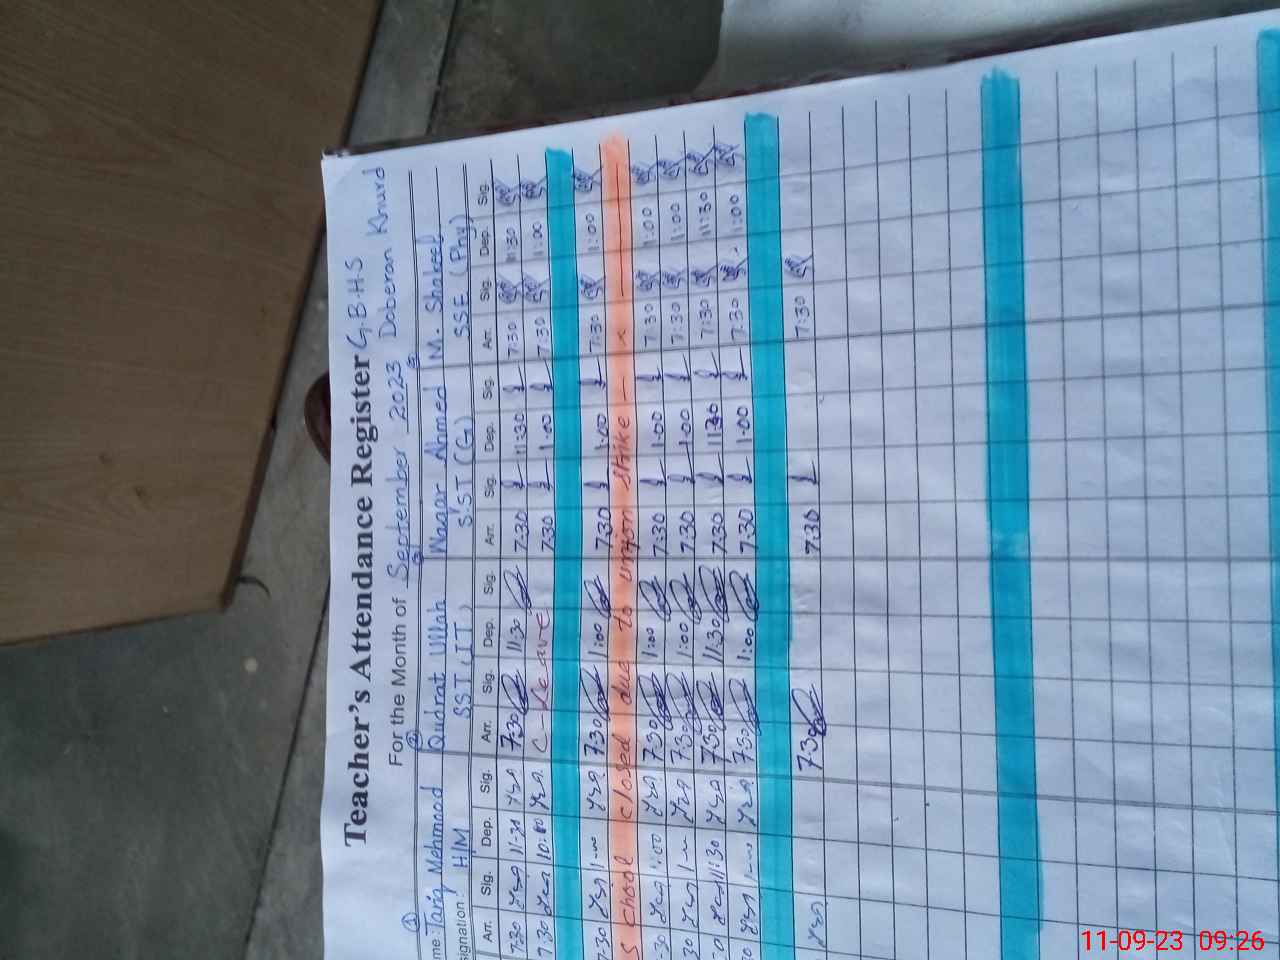 Teacher's Attendance Register G.B.H.S
For the Month of September 2023 Doberan Khurd
① ② ③ ④
me: Tariq Mehmood Qudrat Ullah Waqar Ahmed M. Shakeel
signation: H/M SST (IT) S.ST (G) SSE (Phy)
Arr. Sig. Dep. Sig. Arr. Sig. Dep. Sig. Arr. Sig. Dep. Sig. Arr. Sig. Dep. Sig.
7:30 11-30 7:30 11:30 7:30 11:30 7:30 11:30
7:30 10:00 C-Leave 7:30 1:00 7:30 1:00
7:30 1-00 7:30 1:00 7:30 1:00 7:30 1:00
School closed due to union strike
7:30 1:00 7:30 1:00 7:30 1:00 7:30 1:00
30 1-00 7:30 1:00 7:30 1:00 7:30 1:00
0 11:30 7:30 11:30 7:30 11:30 7:30 11:30
30 1-00 7:30 1:00 7:30 1:00 7:30 1:00
7:30 7:30 7:30
11-09-23 09:26